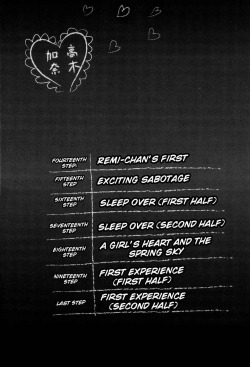 高木
加奈
FOURTEENTH STEP:
REMI-CHAN'S FIRST
FIFTEENTH STEP
EXCITING SABOTAGE
SIXTEENTH STEP
SLEEP OVER (FIRST HALF)
SEVENTEENTH STEP
SLEEP OVER (SECOND HALF)
EIGHTEENTH STEP
A GIRL'S HEART AND THE
SPRING SKY
NINETEENTH STEP
FIRST EXPERIENCE
(FIRST HALF)
LAST STEP
FIRST EXPERIENCE
(SECOND HALF)